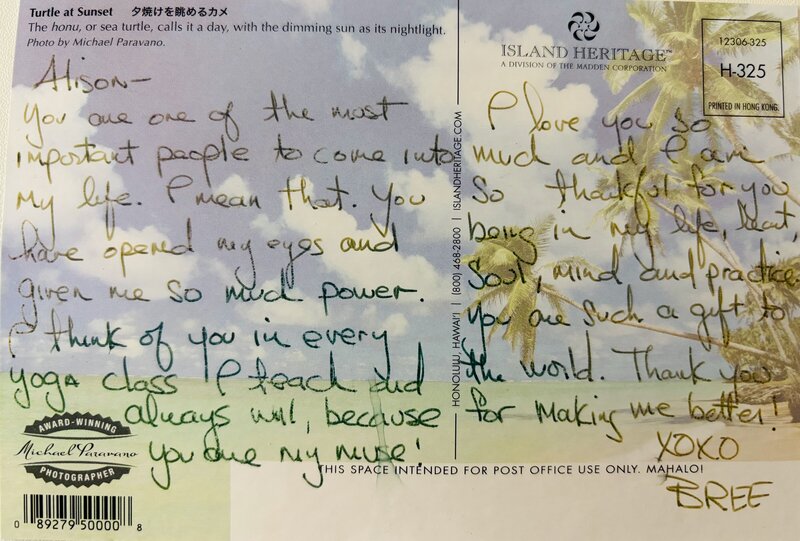 Turtle at Sunset 夕焼けを眺めるカメ
The honu, or sea turtle, calls it a day, with the dimming sun as its nightlight.
Photo by Michael Paravano.
ISLAND HERITAGE™
A DIVISION OF THE MADDEN CORPORATION
12306-325
H-325
PRINTED IN HONG KONG.
Alison—
You are one of the most
important people to come into
my life. I mean that. You
have opened my eyes and
given me so much power.
I think of you in every
yoga class I teach and
always will, because
you are my muse!
HONOLULU, HAWAI'I | (800) 468-2800 | ISLANDHERITAGE.COM
I love you so
much and I am
so thankful for you
being in my life, heart,
soul, mind and practice.
You are such a gift to
the world. Thank you
for making me better!
XOXO
BREE
AWARD-WINNING
Michael Paravano
PHOTOGRAPHER
THIS SPACE INTENDED FOR POST OFFICE USE ONLY. MAHALO!
0 89279 50000 8